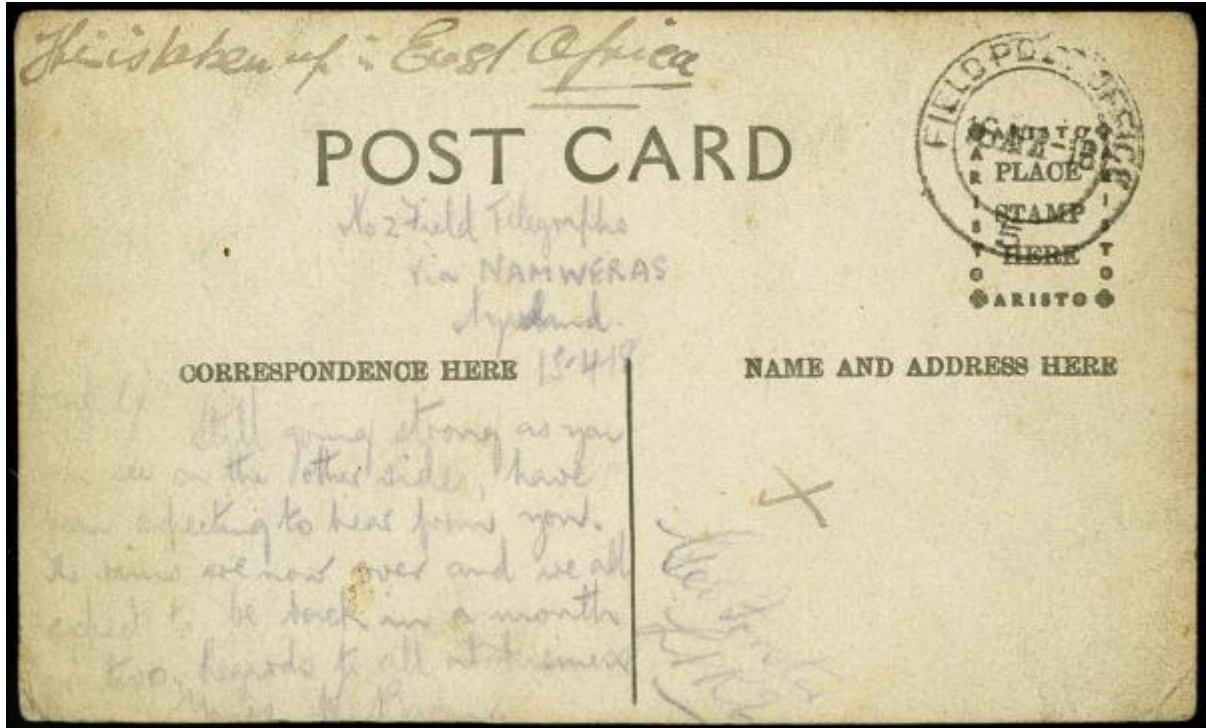 This is taken up in East Africa
POST CARD
FIELD POST OFFICE
ARISTO
ARISTO
ARISTO
ARISTO
PLACE
STAMP
HERE
5
No 2 Field Telegraphs
Via NAMWERAS
Nyasaland.
13-4-18
CORRESPONDENCE HERE
NAME AND ADDRESS HERE
Still going strong as you
see on the other side, have
been expecting to hear from you.
The rains are now over and we all
expect to be back in a month
two, Regards to all at
Yours